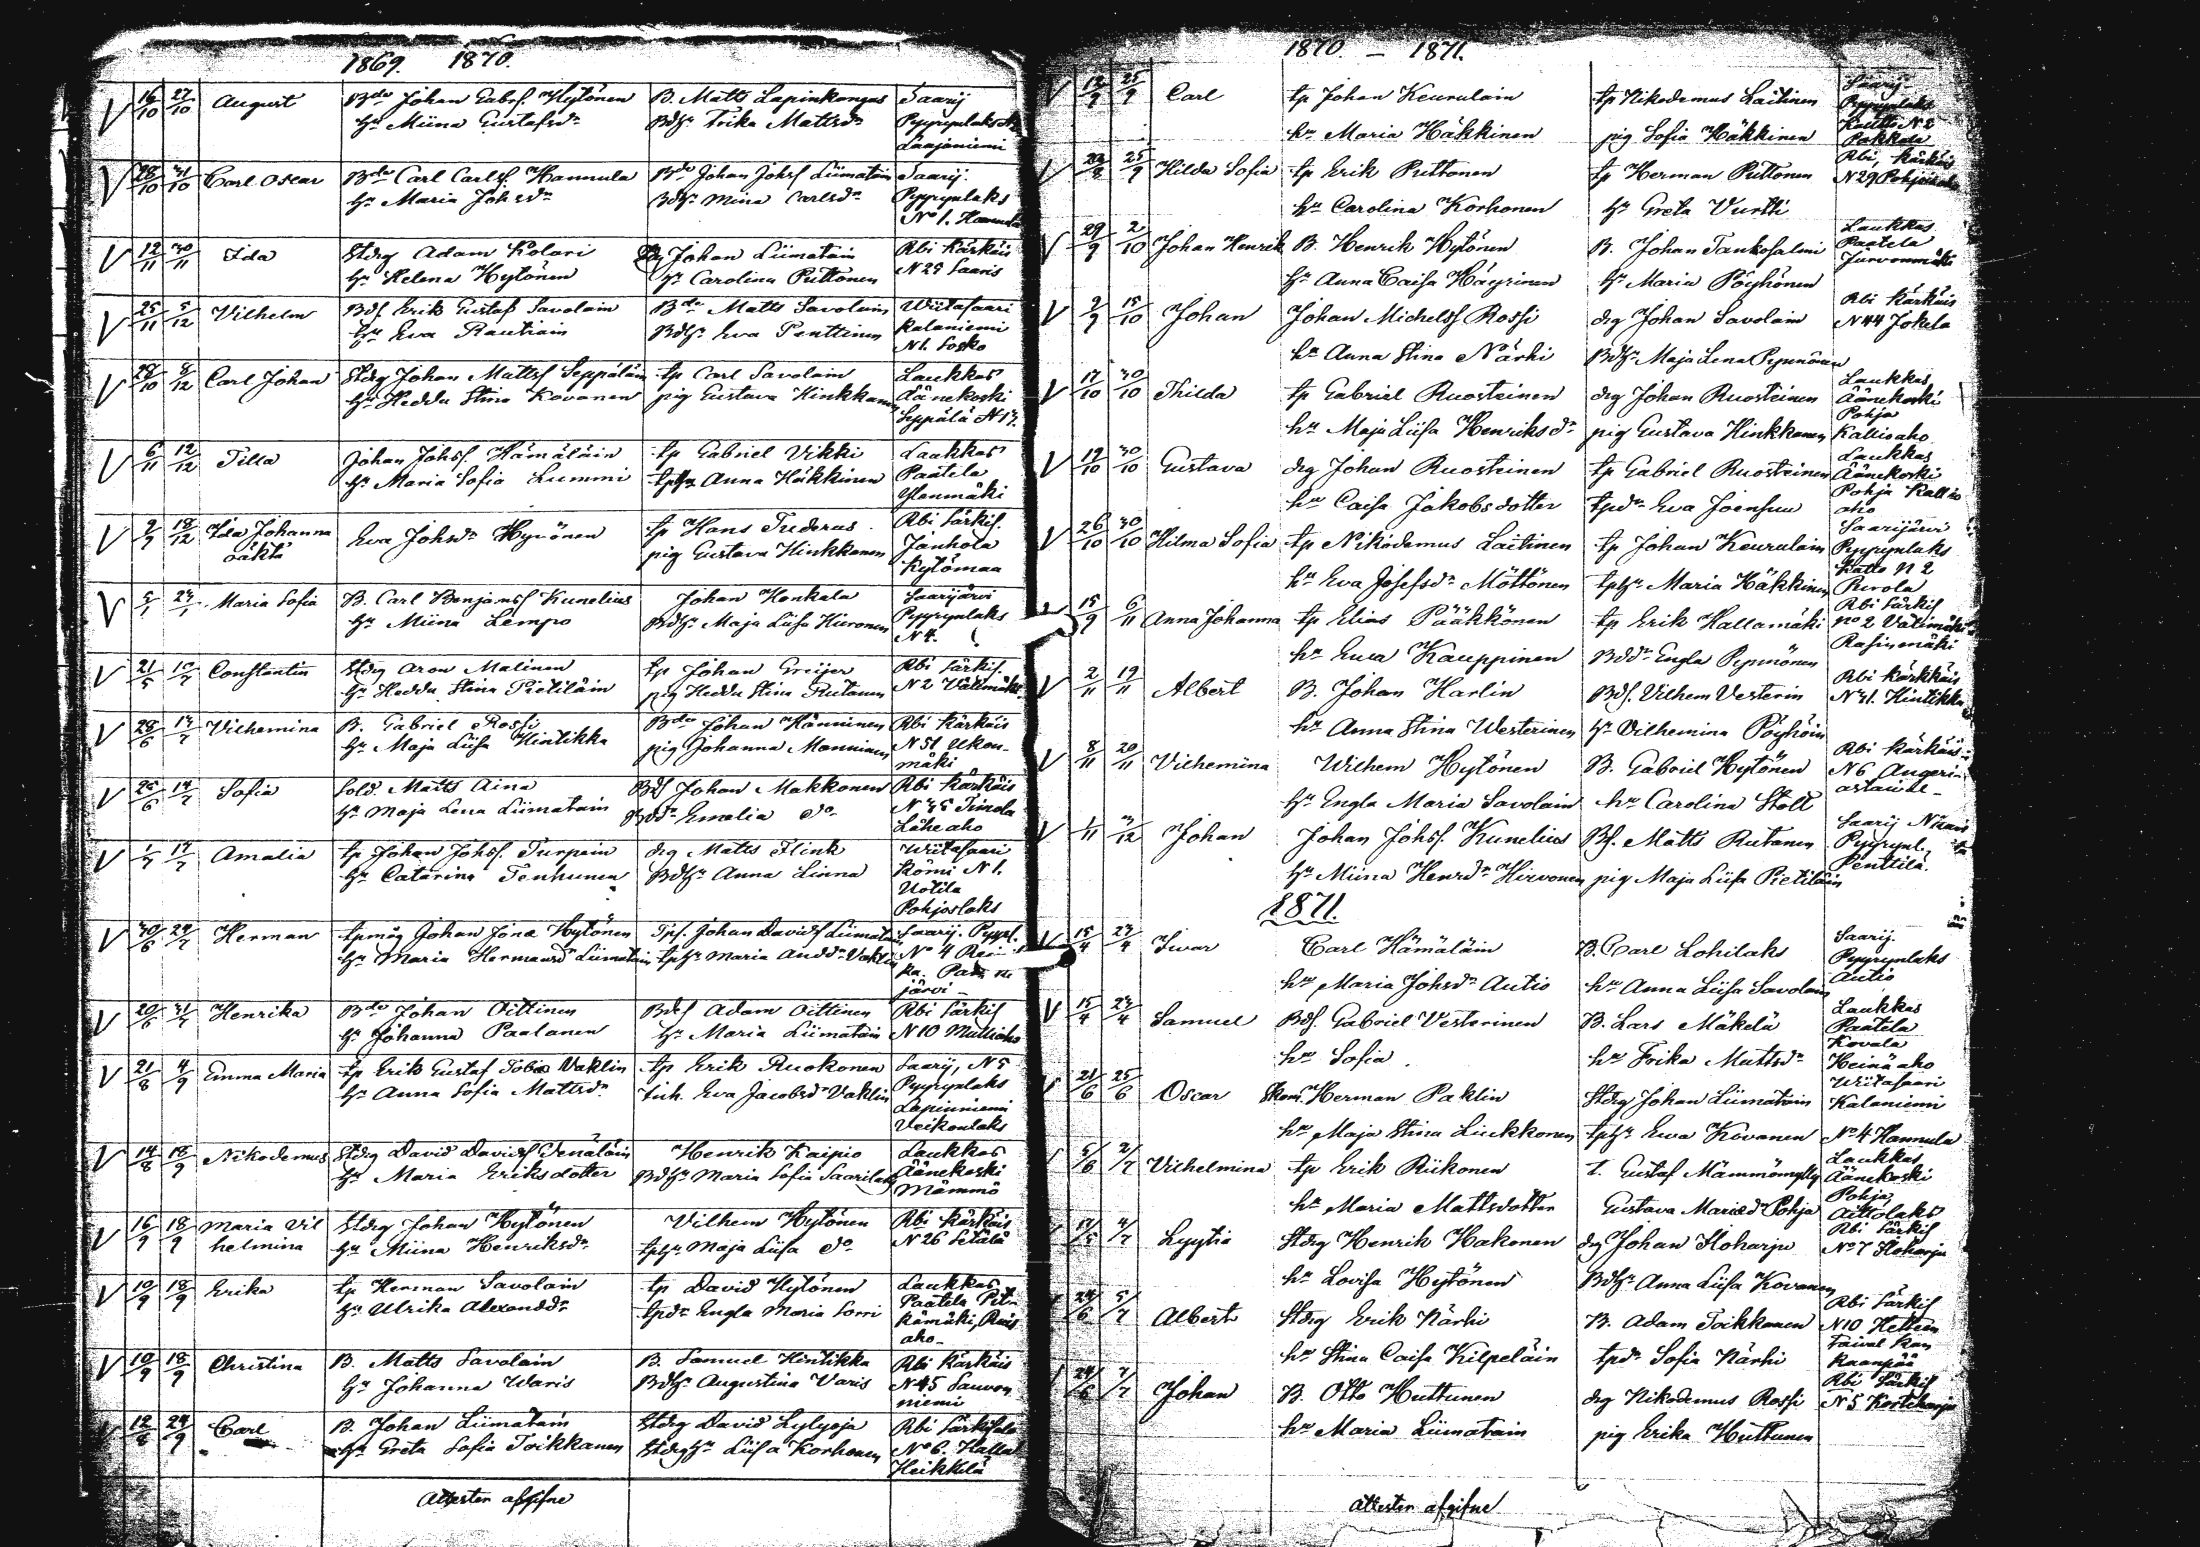 1869. 1870.
V 16/10 27/10 August Bde Johan Gabrs. Hytönen B. Matts Lapinkangas Saarij
hu Miina Gustafsdr Bdhr Erika Mattsdr Pyyrynlaks
Laajaniemi
V 28/10 31/10 Carl Oscar Bde Carl Carlsf Hannula Bde Johan Johsf Liimatain Saarij.
hu Maria Johsdr Bdhr Mina Carlsdr Pyyrynlaks
No 1. Hannula
V 12/11 30/11 Ida Stdrg Adam Kolari Johan Liimatain Rbi Kärkäis
hu Helena Hytönen hu Carolina Puttonen N 29 Saaris
V 25/11 5/12 Vilhelm Bdf Erik Gustaf Savolain Bde Matts Savolain Wiitasaari
hu Eva Rautiain Bdhr Eva Penttinen Kalaniemi
N 1. Sosko
V 28/10 8/12 Carl Johan Stdrg Johan Mattsf Seppäläin tp Carl Savolain Laukkas
hu Hedda Stina Kovanen pig Gustava Hinkkanen Äänekoski
Seppälä N 13.
V 6/11 12/12 Tilla Johan Johsf. Hämäläin tp Gabriel Vikki Laukkas
hu Maria Sofia Lummi tphu Anna Häkkinen Paatela
Ylenmäki
V 2/9 18/12 Ida Johanna Eva Johsdr Hyvönen tp Hans Tuderus Rbi Särkis.
oäkta pig Gustava Hinkkanen Janhola
Kytömaa
V Maria Sofia B. Carl Benjamsf Kunelius Johan Honkala Saarijärvi
hu Miina Lempo Bdhr Maja Liisa Hirvonen Pyyrynlaks
N 4.
V 21/5 Constantin Stdrg Aron Malinen tp Johan Greijer Rbi Särkis.
hu Hedda Stina Pietiläin pig Hedda Stina Rutanen N 2 Välimäki
V 28/6 Vilhemina B. Gabriel Rossi Bde Johan Hänninen Rbi Kärkäis
hu Maja Liisa Hintikka pig Johanna Manninen N 51 Ukon-
mäki
V Sofia Sold. Matts Aina Bdf Johan Makkonen Rbi Kärkäis
hu Maja Lena Liimatain Bddr Emalia do N 35
Läheaho
V 1/7 17/7 Amalia tp Johan Johsf. Turpein drg Matts Flink Wiitasaari
hu Catarina Tenhunen Bdhr Anna Linna Kömi N 1.
Uotila
Pohjoslaks
V 30/6 24/7 Herman tpmåg Johan Jöns Hytönen Tpf. Johan Davidf Liimatain Saarij. Pyyrl.
hu Maria Hermansdr Liimatain tphu Maria Anddr Vaklin No 4
järvi
V 20/6 31/7 Henrika Bde Johan Oittinen Bdf Adam Oittinen Rbi Särkis
hu Johanna Paalanen hu Maria Liimatain N 10 Multiaho
V 21/8 4/9 Emma Maria tp Erik Gustaf Tobias Vaklin tp Erik Ruokonen Saarij, N 5
hu Anna Sofia Mattsdr inh. Eva Jacobsdr Vaklin Pyyrynlaks
Lapinniemi
Veikonlaks
V 14/8 18/9 Nikodemus Stdrg David Davidsf Tenäläin Henrik Kaipio Laukkas
hu Maria Eriksdotter Bdhr Maria Sofia Saarilaks Äänekoski
Mämmö
V 16/9 18/9 Maria Vil Stdrg Johan Hytönen Vilhem Hytönen Rbi Kärkäis
helmina hu Miina Henriksdr tphu Maja Liisa do N 26 Setälä
V 10/9 18/9 Erika tp Herman Savolain tp David Hytönen Laukkas
hu Ulrika Alexanddr tpdr Engla Maria Sorri Paatela
aho
V 10/9 18/9 Christina B. Matts Savolain B. Samuel Hintikka Rbi Kärkäis
hu Johanna Waris Bdhr Augustina Varis N 45 Sauvon
niemi
12/8 24/9 Carl B. Johan Liimatain Stdrg David Lylyoja Rbi Särkisalo
hu Greta Sofia Toikkanen Stdrghu Liisa Korhonen No 6.
Heikkilä
Attester afgifne
1870. – 1871.
V 12/9 25/9 Carl tp Johan Keurulain tp Nikodemus Laitinen Saarij
hu Maria Häkkinen pig Sofia Häkkinen Pyyrynlaks
N 2
Pakkala
V 23/8 25/9 Hilda Sofia tp Erik Puttonen tp Herman Puttonen Rbi, Kärkäis
hu Carolina Korhonen hu Greta Vurtti N 29
V 29/9 2/10 Johan Henrik B. Henrik Hytönen B. Johan Tankosalmi Laukkas
hu Anna Caisa Häyrinen hu Maria Pöyhönen Paatela
Jurvonmäki
V 2/9 15/10 Johan Johan Michelsf Rossi drg Johan Savolain Rbi Kärkäis
hu Anna Stina Närhi Bdhr Maja Lena Pynnönen N 44 Jokela
V 17/10 30/10 Thilda tp Gabriel Ruosteinen drg Johan Ruosteinen Laukkas
hu Maja Liisa Henriksdr pig Gustava Hinkkanen Äänekoski
Pohja
Kallioaho
V 19/10 30/10 Gustava drg Johan Ruosteinen tp Gabriel Ruosteinen Laukkas
hu Caisa Jakobsdotter tpdr Eva Joensuu Äänekoski
Pohja Kallio
aho
V 26/10 30/10 Hilma Sofia tp Nikodemus Laitinen tp Johan Keurulain Saarijärvi
hu Eva Josefsdr Möttönen tphu Maria Häkkinen Pyyrynlaks
N 2
Revola
15/9 6/11 Anna Johanna tp Elias Pääkkönen tp Erik Hallamäki Rbi Särkis
hu Ewa Kauppinen Bddr Engla Pynnönen no 2 Välimäki
Rasinmäki
V 2/11 19/11 Albert B. Johan Harlin Bdf. Vilhem Vesterin Rbi Kärkkäis
hu Anna Stina Westerinen hu Vilhemina Pöyhöin N 31. Hintikka
V 8/11 20/11 Vilhemina Wilhem Hytönen B. Gabriel Hytönen Rbi Kärkäis
hu Engla Maria Savolain hu Carolina Stolt N 6 Angeri-
V 1/11 3/12 Johan Johan Johsf. Kunelius Bf. Matts Rutanen Saarij
hu Miina Henrdr Hirvonen pig Maja Liisa Pietiläin Pyyrynl.
Penttilä.
1871.
15/4 23/4 Iwar Carl Hämäläin B. Carl Lohilaks Saarij.
hu Maria Johsdr Autio hu Anna Liisa Savolain Pyyrynlaks
Autio
V 15/4 23/4 Samuel Bdf. Gabriel Vesterinen B. Lars Mäkelä Laukkas
hu Sofia hu Erika Mattsdr Paatela
Kovala
Heinäaho
21/6 25/6 Oscar Herman Paklin Stdrg Johan Liimatain Wiitasaari
hu Maja Stina Liukkonen tphu Ewa Kovanen Kalaniemi
No 4 Hannula
5/6 2/7 Vilhelmina tp Erik Riikonen t. Gustaf Mämmömylly Laukkas
hu Maria Mattsdotter Gustava Mariedr Pohja Äänekoski
Pohja
Aittolaks
Lyytia Stdrg Henrik Hakonen drg Johan Sloharju Rbi Särkis
hu Lovisa Hytönen Bdhr Anna Liisa Kovanen No 7 Sloharju
24/6 5/7 Albert Stdrg Erik Närhi B. Adam Toikkanen Rbi Särkis
hu Stina Caisa Kilpeläin tpdr Sofia Närhi N 10
Kaanpää
24/6 7/7 Johan B. Otto Huttunen drg Nikodemus Rossi Rbi Särkis
hu Maria Liimatain pig Erika Huttunen N 5 Korteharju
Attester afgifne